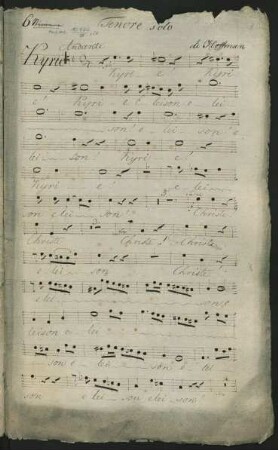 Tenore solo
Andante
di Hoffmann
Kyrie
Kyri e Kyri
e Kyri e e leison e lei
son e lei son e
lei son Kyri e
Kyri e e lei
son e lei son Christe
Christe Christe Christe
e lei son Christe
e lei son
leison e lei
son e lei son e lei
son e lei son e lei son